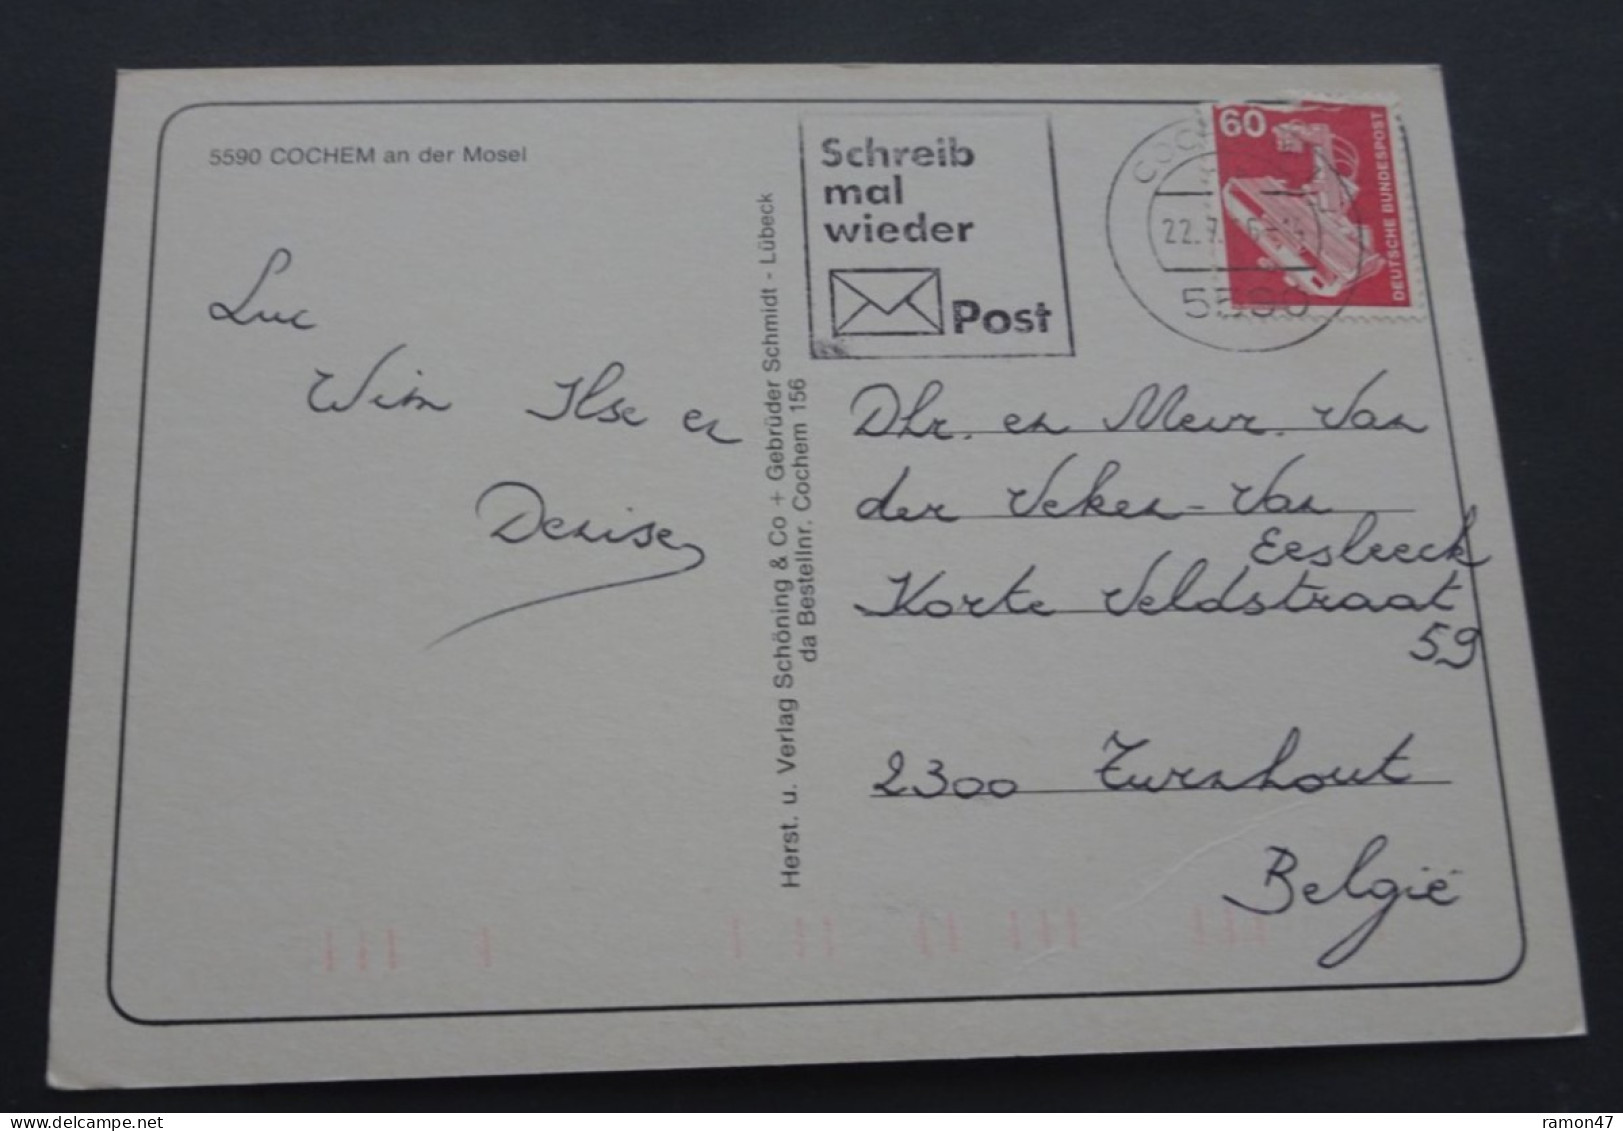 5590 COCHEM an der Mosel
Luc
Wim Ilse en
Denise
Herst. u. Verlag Schöning & Co + Gebrüder Schmidt - Lübeck
da Bestellnr. Cochem 156
Schreib
mal
wieder
Post
22.7.
5590
60
DEUTSCHE BUNDESPOST
Dhr. en Mevr. Van
der Veken - Van
Eesbeeck
Korte Veldstraat
59
2300 Turnhout
België
ramon47